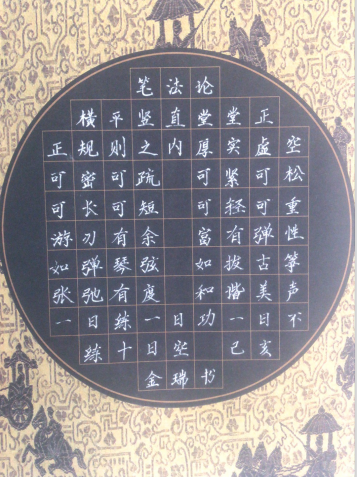 笔法论
横平竖直堂堂正
正规则之内厚实虚空
可密可疏可紧可松
可长可短可轻可重
游刃有余富有弹性
如弹琴弦如拔古筝
张弛有度和谐美声
一日练一日功一日不
练十日空己亥
金瑞书